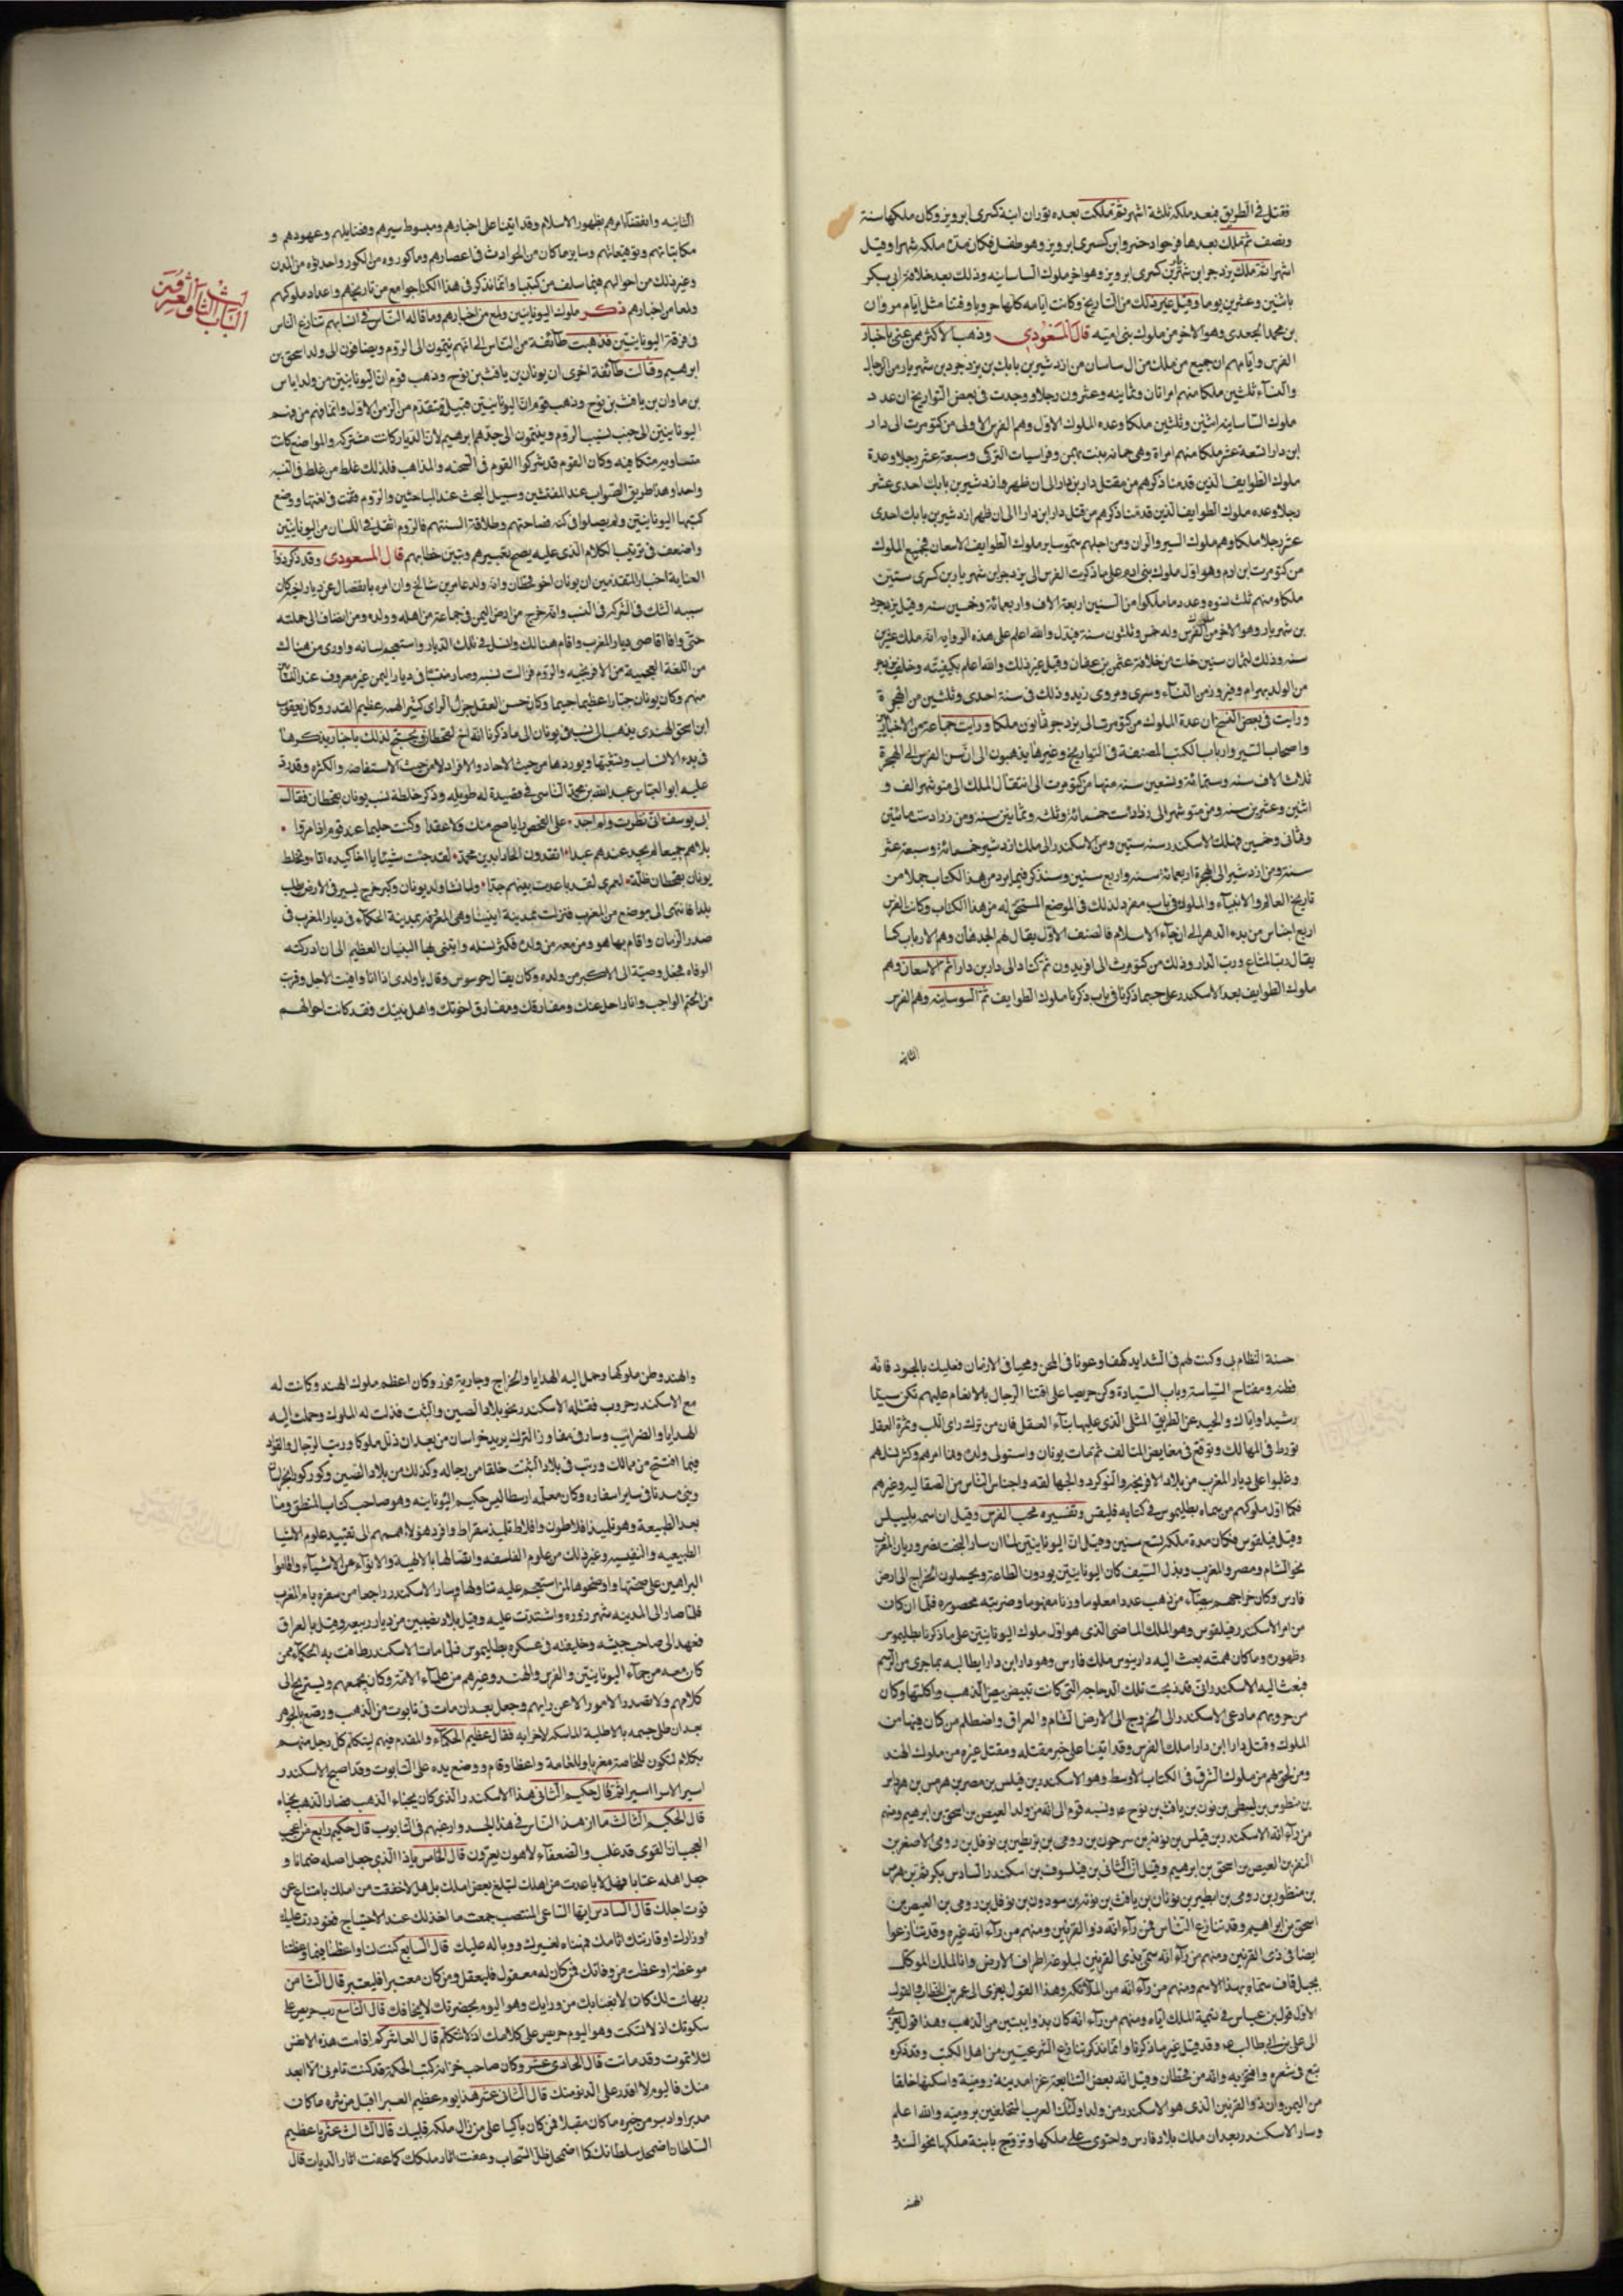 فقتل في الطريق فبعد ملكه ثلثة اشهر ثم ملكت بعده بوران ابنة كسرى ابرويز وكان ملكها سنة
ونصف ثم ملك بعدها فرخزاد خسرو ابن كسرى ابرويز وهو طفل فكان مدة ملكه شهرا وقيل
اشهرا ثم ملك يزدجر ابن كسرى ابرويز وهو اخر ملوك الساسانيه وذلك بعد خلافة ابي بكر
باثنين وعشرين يوما وقيل غير ذلك من التاريخ وكانت ايامه كلها حروبا وفتنا مثل ايام مروان
بن محمد الجعدي وهو الاخر من ملوك بني اميه قال المسعودي وذهب الاكثر ممن عني باخبار
الفرس وايامهم ان جميع من ملك من ال ساسان من ازدشير بن بابك بن يزدجرد بن شهريار من الرجال
والنساء ثلثين ملكا منهم امراتان وثمانيه وعشرون رجلا ووجدت في بعض التواريخ ان عدد
ملوك الساسانيه اثنين وثلثين ملكا وعده الملوك الاول وهم الفرس الاولى من كيومرت الى دار
ابن دارا تسعة عشر ملكا منهم امراة وهي حمايه بنت بهمن وفراسيات التركي وسبعة عشر رجلا وعدة
ملوك الطوايف الذين قدمنا ذكرهم من مقتل دار بن دارا الى ان ظهر ازدشير بن بابك احدى عشر
رجلا وعده ملوك الطوايف الذين قدمنا ذكرهم من قتل دار ابن دارا الى ان ظهر ازدشير بن بابك احدى
عشر رجلا ملكا وهم ملوك السير والران ومن اجلهم سموا ساير ملوك الطوايف الاسعان فجميع الملوك
من كيومرت ابن ادم وهو اول ملوك بني ادم على ما ذكرت الفرس الى يزدجر ابن شهريار بن كسرى ستين
ملكا ومنهم ثلث نسوه وعدد ما ملكوا من السنين اربعة الاف واربعمائة وخمسين سنه وقيل يزدجرد
بن شهريار وهو الاخر من ملوك الفرس وله خمس وثلثون سنة قتل والله اعلم على هذه الروايه انه ملك عشرين
سنه وذلك لثمان سنين خلت من خلافة عثمن بن عفان وقيل غير ذلك والله اعلم بكيفيته وخلف يزدجر
من الولد بهرام وفيروز من النساء وسرى ومروى زيد وذلك في سنة احدى وثلثين من الهجرة
ورايت في بعض النسخ ان عدة الملوك من كيومرت الى يزدجر ثمانون ملكا ورايت جماعة من الاخباريين
واصحاب السير وارباب الكتب المصنفة في التواريخ وغيرها يذهبون الى ان سن الفرس الى الهجرة
ثلاث الاف سنه وستمائة وتسعين سنه منها من كيومرت الى انتقال الملك الى منوشهر الف و
اثنين وعشرين سنه ومن منوشهر الى زرادشت خمسمائة وثلثه وثمانين سنه ومن زرادست مائتين
وثماني وخمسين فملك الاسكندر سنه ستين ومن الاسكندر الى ملك ازدشير خمسمائة وسبعة عشر
سنة ومن ازدشير الى الهجرة اربعمائة سنه واربع سنين وسنذكر فيما يرد من هذا الكتاب جملا من
تاريخ العالم والانبياء والملوك في باب مفرد لذلك في الموضع المستحق له من هذا الكتاب وكانت الفرس
اربع اجناس من بدء الدهر الى ان جاء الاسلام فالصنف الاول يقال لهم الجدهان وهم الارباب كما
يقال رب المتاع ورب الدار وذلك من كيومرث الى افريدون ثم كنا دالى دار بن دارا ثم الاسعان وهم
ملوك الطوايف بعد الاسكندر على حسبما ذكرنا في باب ذكرنا ملوك الطوايف ثم السوسانيه وهم الفرس
الثانيه
الثانيه وانقضا امرهم بظهور الاسلام وقد اتينا على اخبارهم ومبسوط سيرهم وفضايلهم وعهودهم و
مكاتباتهم وتوقيعاتهم وساير ما كان من الحوادث في اعصارهم وما كوروه من الكور واحدثوه من المدن
وغير ذلك من احوالهم فيما سلف من كتبنا وانما نذكر في هذا الكتاب جوامع من تاريخهم واعداد ملوكهم
ولمعا من اخبارهم ذكر ملوك اليونانيين ولمع من اخبارهم وما قاله الناس في انسابهم تنازع الناس
الباب الثاني والعشرين
في فرقة اليونانيين فذهبت طآئفة من الناس الى انهم ينتمون الى الروم ويضافون الى ولد اسحق بن
ابرهيم وقالت طآئفة اخرى ان يونان بن يافث بن نوح وذهب قوم ان اليونانيين من ولد اياس
بن ماوان بن يافث بن نوح وذهب قوم ان اليونانيين قبيل متقدم من الزمن الاول وانما وهم من وهم
اليونانيين الى جنب نسب الروم وينتمون الى جدهم ابرهيم لان الديار كانت مشتركه والمواضع كانت
متساويه متكافيه وكان القوم قد شركوا القوم في السحنه والمذاهب فلذلك غلط من غلط في النسبه
واحدا وهذا طريق الصواب عند المفتشين وسبيل البحث عند الباحثين والروم قفت في لغتها ووضع
كتبها اليونانيين ولم يصلوا في كنه فصاحتهم وطلاقة السنتهم فالروم انقص في اللسان من اليونانيين
واضعف في ترتيب الكلام الذي عليه يصح تعبيرهم وتبين خطابهم قال المسعودى وقد ذكر ذوا
العناية اخبار المتقدمين ان يونان اخو قحطان وانه ولد عابر بن شالخ وان امره بانفصال عن ديار اخيه كان
سببه الشك في الشركه في النسب وانه خرج من ارض اليمن في جماعة من اهله وولده ومن انضاف الى جملته
حتى وافا اقاصي ديار المغرب واقام هنالك وانسل في تلك الديار واستعجم لسانه واورى من هناك
من اللغة العجمية من الافرنجيه والروم فزالت نسبه وصار منسيا في ديار اليمن غير معروف عند النساب
منهم وكان يونان جبارا عظيما جسيما وكان حسن العقل جزل الراى كثير الهمه عظيم القدر وكان يعقوب
ابن اسحق الهندى يذهب الى نسب في يونان الى ما ذكرنا انه اخ لقحطان ويحتج لذلك باخبار يذكرها
في بدء الانساب وتشعبها ويوردها من حيث الاحاد والافراد لا من حيث الاستفاضه والكثره وقد رد
عليه ابو العباس عبد الله بن محمد الناسى في قصيدة له طويله وذكر خلطة نسب يونان بقحطان فقال
ابا يوسف اني نظرت ولم اجد • على الفحص رايا صح منك ولا عقدا وكنت حليما عند قوم اذا مرقا •
بلاهم جميعا لم يجد عندهم عبدا • اتقدون الحاد ابدين محمد • لقد جئت شيئا يا اخا كنده ادا • وتخلط
يونان بقحطان ظلة • لعمرى لقد باعدت بينهم جدا • ولما نشا ولد يونان وكبر خرج يسير في الارض يطلب
بلدا فانتهى الى موضع من المغرب فنزلت بمدينة ايثينا وهي المعروفه بمدينة الحكمآء في ديار المغرب في
صدر الزمان واقام بها هو ومن معه من ولده فكثر نسله وابتنى بها البنيان العظيم الى ان ادركته
الوفاه فجعل وصيته الى الاكبر من ولده وكان يقال حرسوس وقال يا ولدى اذا انا وافيت الاجل وقربت
من الحتم الواجب وانا راحل عنك ومفارقك ومفارق اخوتك واهل بيتك وقد كانت احوالهم
حسنة النظام بي وكنت لهم في الشدايد كهفا وعونا في المحن ومحيا في الازمان فعليك بالجود فانه
قطنه ومفتاح السياسة وباب السيادة وكن حريصا على اقتنا الرجال بالانعام عليهم تكن سيدا
رشيدا واياك والحيد عن الطريق المثلى الذي عليها بنآء العقل فان من ترك راى اللب وثمرة العقل
تورط في المهالك ووقع في مغايص المتالف ثم مات يونان واستولى ولده ونما امرهم وكثر نسلهم
وغلبوا على ديار المغرب من بلاد الافرنجه والنوكرد والجهالقه واجناس الناس من الصقاليه وغيرهم
فكما اول ملوكهم من سماه بطليموس في كتابه فليفس وتفسيره محب الفرس وقيل ان اسمه بلبيلس
وقيل فيلقوس فكان مدة ملكه تسع سنين وقيل ان اليونانيين لما ان سار البخت نصر وديان المغرب
نحو الشام ومصر والمغرب وبذل السيف كان اليونانيين يودون الطاعة ويحملون الخراج الى ارض
فارس وكان خراجهم بيضآء من ذهب عددا معلوما وزنا مفهوما وضريبة محصوره فلما ان كان
من امر الاسكندر فيلقوس وهو الملك الماضي الذي هو اول ملوك اليونانيين على ما ذكرنا بطليموس
وظهوره وما كان همته بعث اليه داريوس ملك فارس وهو دار ابن دارا يطالبه بما جرى من الرسم
فبعث اليه الاسكندر اني قد ذبحت تلك الدجاجه التي كانت تبيض بيض الذهب واكلتها وكان
من حروبهم ما دعى الاسكندر الى الخروج الى الارض الشام والعراق واضطلم من كان فيها من
الملوك وقتل دارا ابن دارا ملك الفرس وقد اتينا على خبر مقتله ومقتل غيره من ملوك الهند
ومن لحق هم من ملوك الشرق في الكتاب الاوسط وهو الاسكندر بن فيلس بن مصر بن هرمس بن هردابر
بن منطوس بن ليطي بن نون بن يافث بن نوح ع ونسبه قوم الى انه من ولد العيص بن اسحق بن ابرهيم ومنهم
من رآء انه الاسكندر بن فيلس بن نونه بن سرحون بن رومي بن بزنطين بن نوفل بن رومي الاصغر بن
النفر بن العيص بن اسحق بن ابرهيم وقيل
بن منظور بن رومي بن ليطير بن يونان بن يافث بن نونه بن سودون بن نوفل بن رومي بن العيص بن
اسحق بن ابراهيم وقد تنازع الناس فمن رآء انه ذوا القرنين ومنهم من رآء انه غيره وقد تنازعوا
ايضا في ذي القرنين ومنهم من رآء انه سمى بذي القرنين لبلوغه اطراف الارض وان الملك الموكل
بجبل قاف سماه بهذا الاسم ومنهم من رآء انه من الملآئكه وهذا القول يعزى الى عمر بن الخطاب والقول
الاول قول بن عباس في تسمية الملك اياه ومنهم من رآء انه كان بذوايبتين من الذهب وهذا قول يعزى
الى علي بن ابي طالب ع وقد قيل غير ما ذكرنا وانما نذكر تنازع الشرعيين من اهل الكتب وقد ذكره
تبع في شعره وافتخر به وانه من قحطان وقيل انه بعض التبابعة غزا مدينة روميه واسكنها خلقا
من اليمن وان ذو القرنين الذي هو الاسكندر من ولد اولئك العرب المتخلفين برومية والله اعلم
وسار الاسكندر بعد ان ملك بلاد فارس واحتوى على ملكها وتزوج بابنة ملكها نحو السند
الهند
والهند وطن ملوكها وحمل اليه الهدايا والخراج وجاريه فور وكان اعظم ملوك الهند وكانت له
مع الاسكندر حروب فقتله الاسكندر نحو بلاد الصين والتبت فذلت له الملوك وحملت اليه
الهدايا والضرايب وسار في مفاوز الترك يريد خراسان من بعد ان ذلل ملوكا ورتب الرجال والقواد
فيما افتتح من ممالك ورتب في بلاد التبت خلقا من رجاله وكذلك من بلاد الصين وكور كور الخراسان
وبنى مدنا في ساير اسفاره وكان معلمه ارسطاليس حكيم اليونانيه وهو صاحب كتاب المنطق وما
بعد الطبيعة وهو تلميذ افلاطون وافلاط تلميذ سقراط وافرد هولا هممهم الى تقييد علوم الاشيا
الطبيعيه والنفيسيه وغير ذلك من علوم الفلسفه واتصالها بالالهية والابوآء عن الاشيآء واقاموا
البراهين على صحتها واوضحوها لمن استعجم عليه تناولها وسار الاسكندر راجعا من سفره يام المغرب
فلما صار الى المدينه شهر زوره واشتدت عليه وقيل بلاد نصيبين من ديار ربيعه وقيل بالعراق
فعهد الى صاحب جيشه وخليفته في عسكره بطليموس فلما مات الاسكندر طافت به الحكمآء ممن
كان معه من حكمآء اليونانيين والفرس والهند وغيرهم من علمآء الامم وكان يجمعهم ويستريح الى
كلامهم ولا يصدر الامور الا عن رايهم وجعل بعد ان مات في تابوت من الذهب ورصع بالجوهر
بعد ان طلى جسمه بالاطلية الماسكه لاجزايه فقال عظيم الحكمآء والمقدم فيهم ليتكلم كل رجل منهم
بكلام تكون للخاصة معزيا وللعامة واعظا وقام ووضع يده على التابوت وقد اصبح الاسكندر
اسير الاسرا اسيرا ثم قال حكيم الثاني هذا الاسكندر الذي كان يخباء الذهب فصار الذهب يخباه
قال الحكيم الثالث ما ازهد الناس في هذا الجسد وارغبهم في التابوب قال حكيم رابع من اعجب
العجب ان القوى قد غلب والضعفآء لاهون يعزون قال الخامس يا ذا الذي جعل اصله ضمانا و
جعل اهله عتابا فهلا باعدت من اهلك لتبلغ بعض املك بل هلا خففت من املك بامتناع عن
فوت اجلك قال السادس ايها الساعي المنتصب جمعت ما اخذلك عند الاحتياج فغودرت عليك
اوزارك وقارنتك اثامك فهناه لغيرك ووباله عليك قال السابع كنت لنا واعظا فما وعظتنا
موعظة اوعظت من وفاتك فمن كان له معقول فليعقل ومن كان معتبر افليعتبر قال الثامن
رب هايب لك كان لا يغتابك من ورايك وهو اليوم بحضرتك لا يخافك قال التاسع رب حريص على
سكوتك اذ لا تسكت وهو اليوم حريص على كلامك اذ لا تتكلم قال العاشر كم اقامت هذه الارض
لئلا تموت وقد ماتت قال الحادى عشر وكان صاحب خزانة كتب الحكمة قد كنت تامرني الا ابعد
منك فاليوم لا اقدر على الدنو منك قال الثاني عشر هذا يوم عظيم العبر اقبل من شره ما كان
مدبرا وادبر من خيره ما كان مقبلا فمن كان باكيا على من زال ملكه فليبك قال الثالث عشر يا عظيم
السلطان اضمحل سلطانك كما اضمحل ظل السحاب وعفت اثار ملكك كما عفت اثار الديات قال